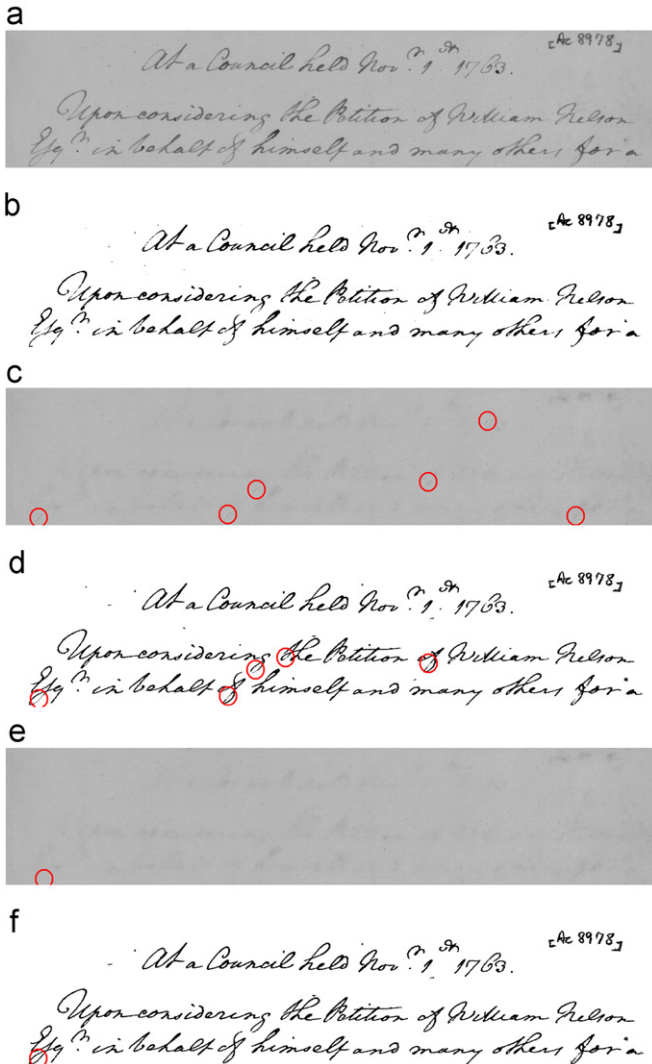 a
[Ac 8978]
At a Council held Nov.r 1.st 1763.
Upon considering the Petition of William Nelson
Esq.r in behalf of himself and many others for a
b
[Ac 8978]
At a Council held Nov.r 1.st 1763.
Upon considering the Petition of William Nelson
Esq.r in behalf of himself and many others for a
c
d
[Ac 8978]
At a Council held Nov.r 1.st 1763.
Upon considering the Petition of William Nelson
Esq.r in behalf of himself and many others for a
e
f
[Ac 8978]
At a Council held Nov.r 1.st 1763.
Upon considering the Petition of William Nelson
Esq.r in behalf of himself and many others for a